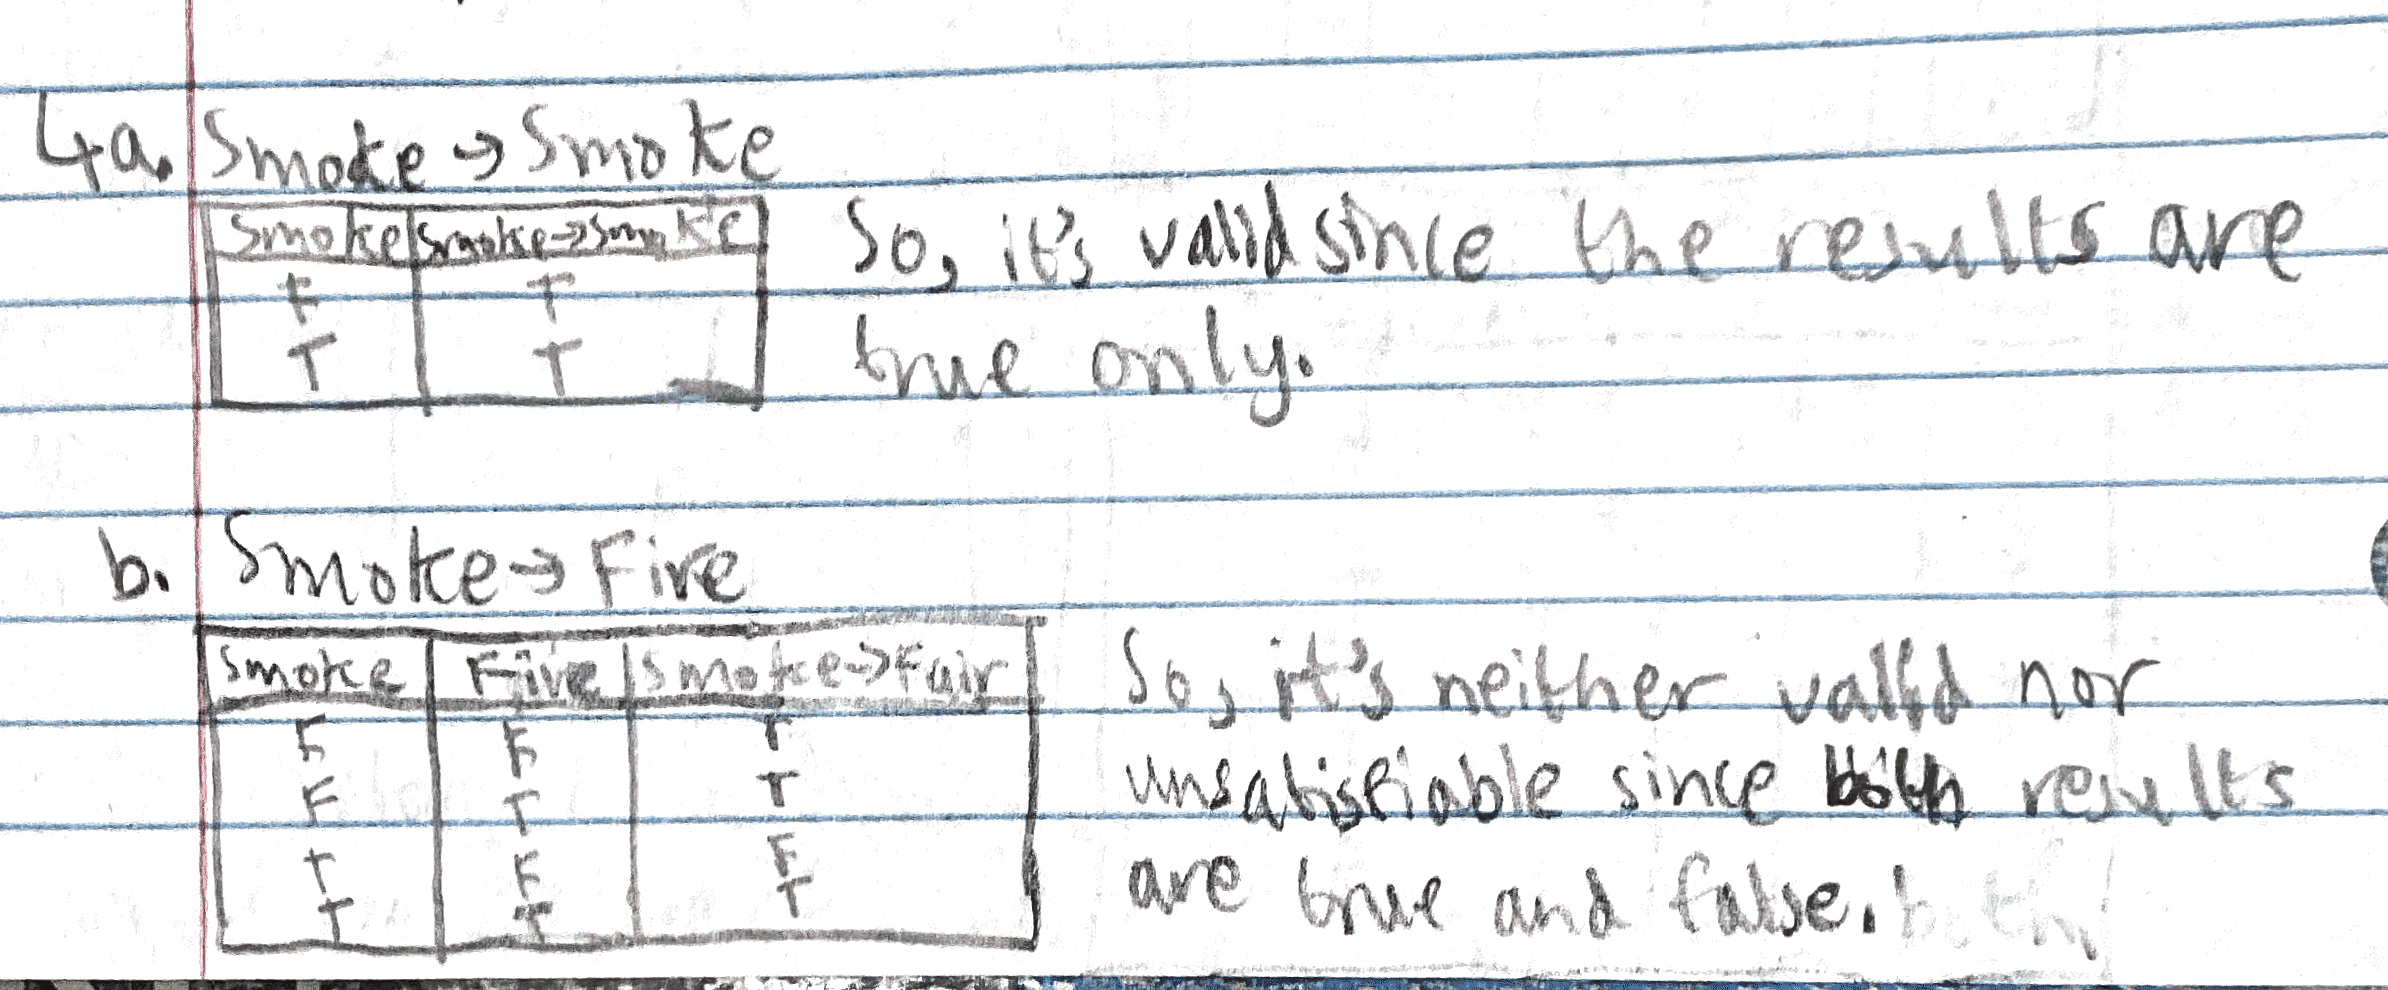 4a. Smoke → Smoke
Smoke Smoke→Smoke
F T
T T
So, it's valid since the results are
true only.
b. Smoke → Fire
Smoke Fire Smoke→Fair
F F T
F T T
T F F
T T T
So, it's neither valid nor
unsatisfiable since both results
are true and false.